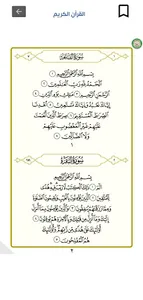 القرآن الكريم
سورة الفاتحة
بسم الله الرحمن الرحيم
الحمد لله رب العالمين
الرحمن الرحيم مالك يوم الدين
إياك نعبد وإياك نستعين اهدنا
الصراط المستقيم صراط الذين أنعمت
عليهم غير المغضوب عليهم
ولا الضالين
١
سورة البقرة
بسم الله الرحمن الرحيم
الم ذلك الكتاب لا ريب فيه هدى
للمتقين الذين يؤمنون بالغيب ويقيمون الصلاة
ومما رزقناهم ينفقون والذين يؤمنون بما أنزل
إليك وما أنزل من قبلك وبالآخرة هم يوقنون
أولئك على هدى من ربهم وأولئك
هم المفلحون
٢